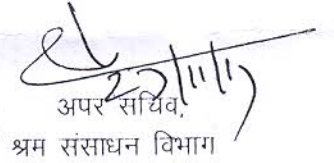 27/11/17
अपर सचिव,
श्रम संसाधन विभाग